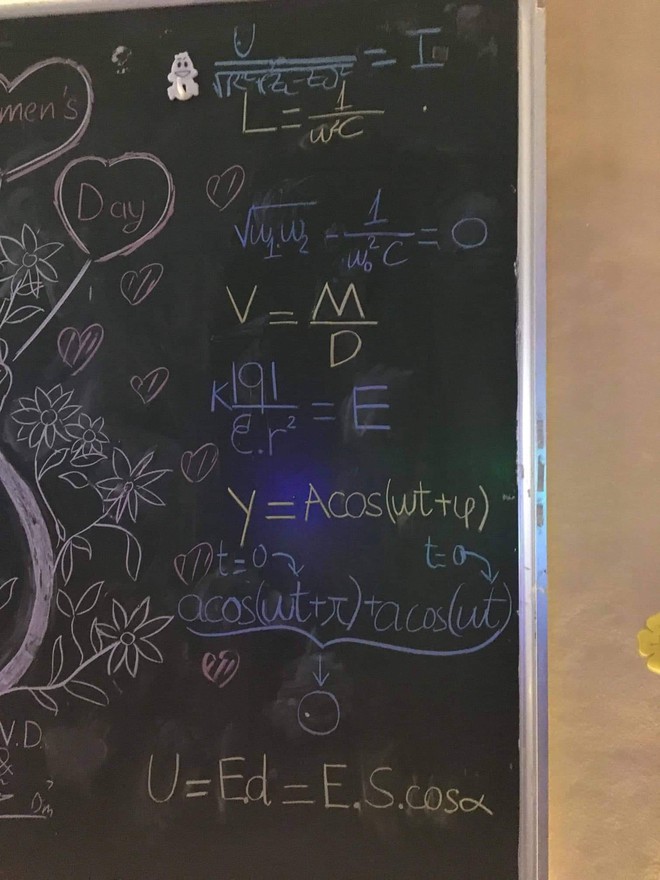 men's
Day
U/√(R²+(Z_L-Z_C)²) = I
L = 1/ω²C
√ω₁.ω₂ - 1/ω₀²C = 0
V = M/D
K|q|/ε.r² = E
y = Acos(ωt+φ)
t=0 t=0
acos(ωt+π)+acos(ωt)
↓
0
V.D.
&
U=Ed=E.S.cosα